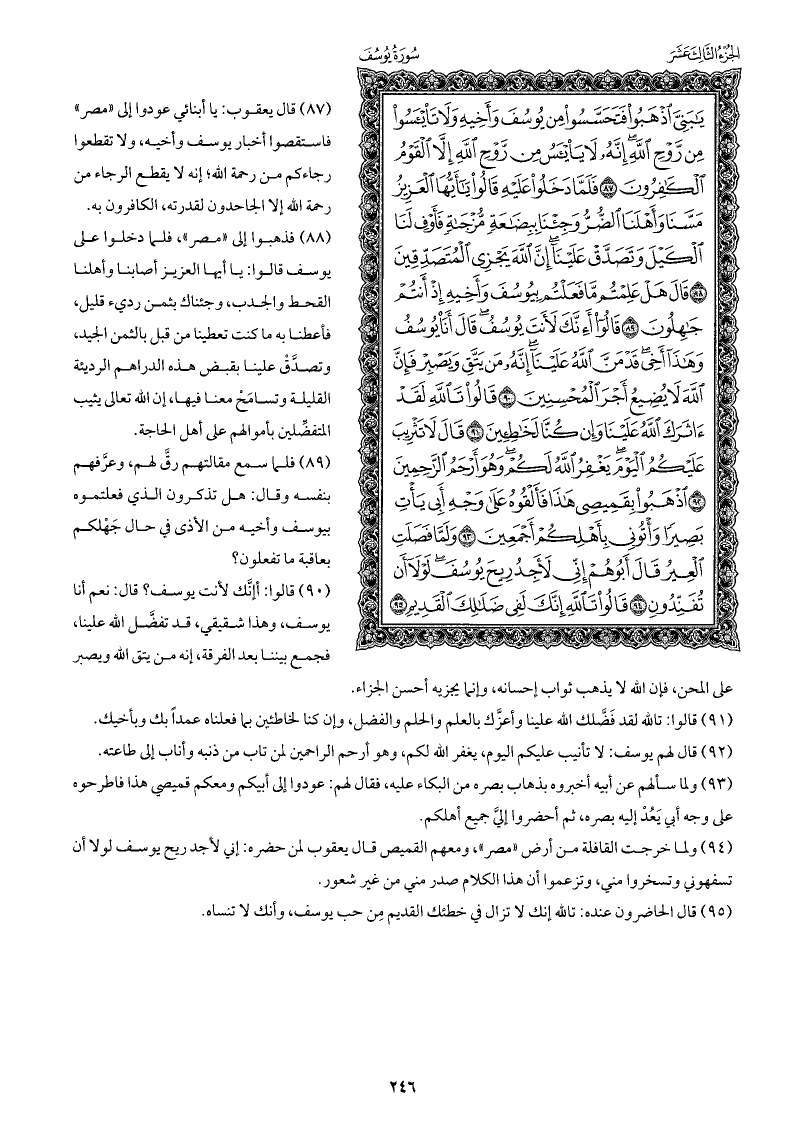 الجزء الثالث عشر
سورة يوسف
يَٰبَنِيَّ ٱذۡهَبُواْ فَتَحَسَّسُواْ مِن يُوسُفَ وَأَخِيهِ وَلَا تَاْيۡـَٔسُواْ
مِن رَّوۡحِ ٱللَّهِۖ إِنَّهُۥ لَا يَاْيۡـَٔسُ مِن رَّوۡحِ ٱللَّهِ إِلَّا ٱلۡقَوۡمُ
ٱلۡكَٰفِرُونَ ٨٧ فَلَمَّا دَخَلُواْ عَلَيۡهِ قَالُواْ يَٰٓأَيُّهَا ٱلۡعَزِيزُ
مَسَّنَا وَأَهۡلَنَا ٱلضُّرُّ وَجِئۡنَا بِبِضَٰعَةٖ مُّزۡجَىٰةٖ فَأَوۡفِ لَنَا
ٱلۡكَيۡلَ وَتَصَدَّقۡ عَلَيۡنَآۖ إِنَّ ٱللَّهَ يَجۡزِي ٱلۡمُتَصَدِّقِينَ
٨٨ قَالَ هَلۡ عَلِمۡتُم مَّا فَعَلۡتُم بِيُوسُفَ وَأَخِيهِ إِذۡ أَنتُمۡ
جَٰهِلُونَ ٨٩ قَالُوٓاْ أَءِنَّكَ لَأَنتَ يُوسُفُۖ قَالَ أَنَا۠ يُوسُفُ
وَهَٰذَآ أَخِيۖ قَدۡ مَنَّ ٱللَّهُ عَلَيۡنَآۖ إِنَّهُۥ مَن يَتَّقِ وَيَصۡبِرۡ فَإِنَّ
ٱللَّهَ لَا يُضِيعُ أَجۡرَ ٱلۡمُحۡسِنِينَ ٩٠ قَالُواْ تَٱللَّهِ لَقَدۡ
ءَاثَرَكَ ٱللَّهُ عَلَيۡنَا وَإِن كُنَّا لَخَٰطِـِٔينَ ٩١ قَالَ لَا تَثۡرِيبَ
عَلَيۡكُمُ ٱلۡيَوۡمَۖ يَغۡفِرُ ٱللَّهُ لَكُمۡۖ وَهُوَ أَرۡحَمُ ٱلرَّٰحِمِينَ
٩٢ ٱذۡهَبُواْ بِقَمِيصِي هَٰذَا فَأَلۡقُوهُ عَلَىٰ وَجۡهِ أَبِي يَأۡتِ
بَصِيرٗا وَأۡتُونِي بِأَهۡلِكُمۡ أَجۡمَعِينَ ٩٣ وَلَمَّا فَصَلَتِ
ٱلۡعِيرُ قَالَ أَبُوهُمۡ إِنِّي لَأَجِدُ رِيحَ يُوسُفَۖ لَوۡلَآ أَن
تُفَنِّدُونِ ٩٤ قَالُواْ تَٱللَّهِ إِنَّكَ لَفِي ضَلَٰلِكَ ٱلۡقَدِيمِ ٩٥
(٨٧) قال يعقوب: يا أبنائي عودوا إلى «مصر»
فاستقصوا أخبار يوسف وأخيه، ولا تقطعوا
رجاءكم من رحمة الله؛ إنه لا يقطع الرجاء من
رحمة الله إلا الجاحدون لقدرته، الكافرون به.
(٨٨) فذهبوا إلى «مصر»، فلما دخلوا على
يوسف قالوا: يا أيها العزيز أصابنا وأهلنا
القحط والجدب، وجئناك بثمن رديء قليل،
فأعطنا به ما كنت تعطينا من قبل بالثمن الجيد،
وتصدَّقْ علينا بقبض هذه الدراهم الرديئة
القليلة وتسامَحْ معنا فيها، إن الله تعالى يثيب
المتفضِّلين بأموالهم على أهل الحاجة.
(٨٩) فلما سمع مقالتهم رقَّ لهم، وعرَّفهم
بنفسه وقال: هل تذكرون الذي فعلتموه
بيوسف وأخيه من الأذى في حال جَهْلكم
بعاقبة ما تفعلون؟
(٩٠) قالوا: أإنَّك لأنت يوسف؟ قال: نعم أنا
يوسف، وهذا شقيقي، قد تفضَّل الله علينا،
فجمع بيننا بعد الفرقة، إنه من يتق الله ويصبر
على المحن، فإن الله لا يذهب ثواب إحسانه، وإنما يجزيه أحسن الجزاء.
(٩١) قالوا: تالله لقد فَضَّلك الله علينا وأعزَّك بالعلم والحلم والفضل، وإن كنا لخاطئين بما فعلناه عمداً بك وبأخيك.
(٩٢) قال لهم يوسف: لا تأنيب عليكم اليوم، يغفر الله لكم، وهو أرحم الراحمين لمن تاب من ذنبه وأناب إلى طاعته.
(٩٣) ولما سألهم عن أبيه أخبروه بذهاب بصره من البكاء عليه، فقال لهم: عودوا إلى أبيكم ومعكم قميصي هذا فاطرحوه
على وجه أبي يَعُدْ إليه بصره، ثم أحضروا إليَّ جميع أهلكم.
(٩٤) ولما خرجت القافلة من أرض «مصر»، ومعهم القميص قال يعقوب لمن حضره: إني لأجد ريح يوسف لولا أن
تسفهوني وتسخروا مني، وتزعموا أن هذا الكلام صدر مني من غير شعور.
(٩٥) قال الحاضرون عنده: تالله إنك لا تزال في خطئك القديم مِن حب يوسف، وأنك لا تنساه.
٢٤٦